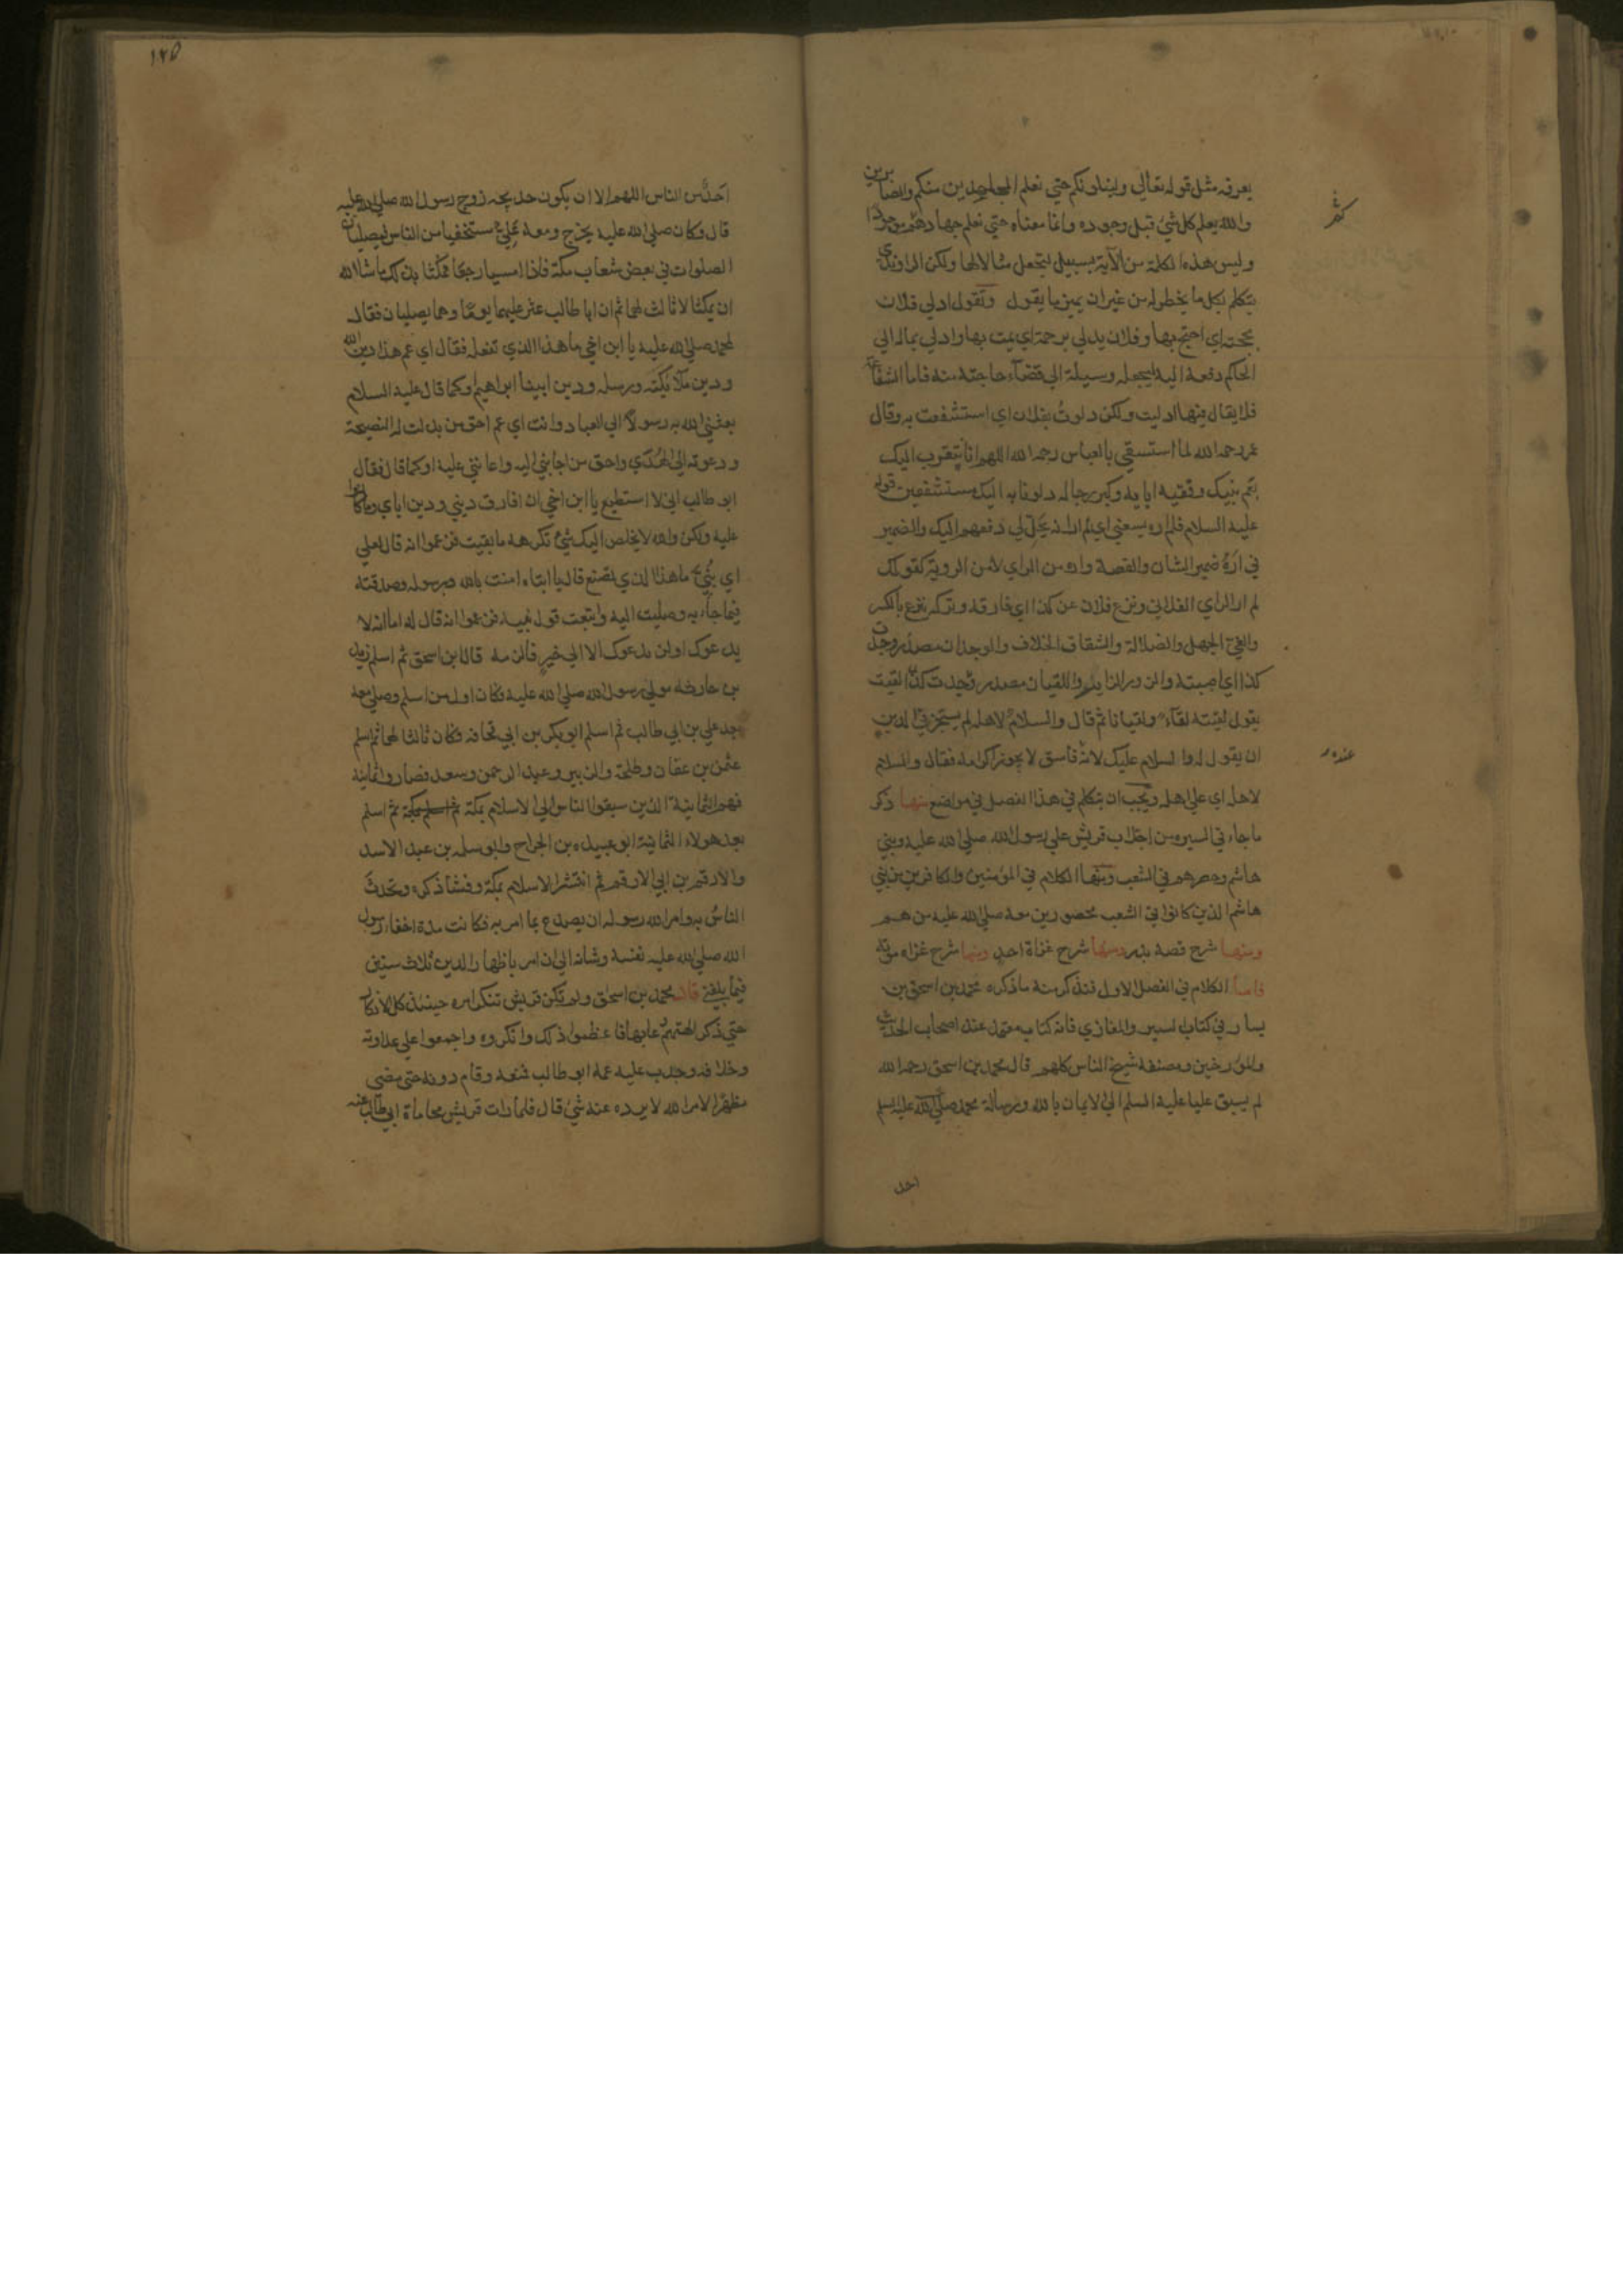 يعرفه مثل قوله تعالي ولنبلونكم حتي نعلم المجاهدين منكم والصابرين
والله يعلم كل شيء قبل وجوده وانما معناه حتي نعلم جهادهم موجودا
وليس هذه الكلمة من الآية بسبيل لتجعل مثالا لها ولكن الراوندي
يتكلم بكل ما يخطر له من غير ان يميز ما يقول وتقول ادلي فلان
بحجته اي احتج بها وفلان يدلي برحمة اي يمت بها وادلي بماله الي
الحاكم دفعه اليه ليجعله وسيلة الي قضآء حاجته منه فاما الشفاعة
فلا يقال فيها ادليت ولكن دلوتُ بفلان اي استشفعت به وقال
عمر رحمه الله لما استسقي بالعباس رحمه الله اللهم انا نتقرب اليك
بعم نبيك وقفية ابايه وكبر رجاله دلونا به اليك مستشفعين قوله
عليه السلام فلم اره يسعني اي لم ار انه يحل لي دفعهم اليك والضمير
في ارهُ ضمير الشان والقصة واره من الراي لا من الروية كقولك
لم ار الراي الفلاني ونزع فلان عن كذا اي فارقه وتركه ينزع بالكسر
والغيّ الجهل والضلالة والشقاق الخلاف والوجدان مصدر وجدت
كذا اي اصبته والزور الزاير واللقيان مصدر لقيت
يقول لقيته لقآء ولقيانا ثم قال والسلام لاهله لم يستجز في الدين
ان يقول له والسلام عليك لانه فاسق لا يجوز اكرامه فقال والسلام
عنده ر
لاهله اي علي اهله ويجب ان يتكلم في هذا الفصل في مواضع منها ذكر
ما جاء في السيره من اجلاب قريش علي رسول الله صلي الله عليه وبني
هاشم وحصرهم في الشعب ومنها الكلام في المؤمنين والكافرين من بني
هاشم الذين كانوا في الشعب محصورين معه صلي الله عليه من هم
ومنها شرح قصة بدر ومنها شرح غزاة احد ومنها شرح غزاة موتة
فاما الكلام في الفصل الاول فنذكر منه ما ذكره محمد بن اسحق بن
يسار في كتاب السير والمغازي فانه كتاب معتمد عند اصحاب الحديث
والمؤرخين ومصنفه شيخ الناس كلهم قال محمد بن اسحق رحمه الله
لم يسبق عليا عليه السلم الي الايمان بالله ورسالة محمد صلي الله عليه وسلم
احد
١٢٥
احدٌ من الناس اللهم الا ان يكون خديجه زوج رسول الله صلي الله عليه
قال وكان صلي الله عليه يخرج ومعه علي مستخفيا من الناس ليصليان
الصلوات في بعض شعاب مكة فاذا امسيا رجعا فمكثا بذلك ما شا الله
ان يمكثا لا ثالث لهما ثم ان ابا طالب عثر عليهما يومًا وهما يصليان فقال
لمحمد صلي الله عليه يا ابن اخي ما هذا الذي تفعله فقال اي عم هذا دين الله
ودين ملآئكته ورسله ودين ابينا ابراهيم وكما قال عليه السلام
بعثني الله به رسولًا الي العباد وانت اي عم احق من بذلت له النصيحة
ودعوته الي الهدي واحق من اجابني اليه واعانني عليه او كما قال فقال
ابو طالب اني لا استطيع يا ابن اخي ان افارق ديني ودين اباي وما كانوا
عليه ولكن والله لا يخلص اليك شئ تكرهه ما بقيت فزعموا انه قال لعلي
اي بنُيّ ما هذا الذي تصنع قال يا ابتاه امنت بالله وبرسوله وصدقته
فيما جآء به وصليت اليه واتبعت قول نبيه فزعموا انه قال له اما انه لا
يدعوك اولن يدعوك الا الي خير فالزمه قال ابن اسحق ثم اسلم زيد
بن حارثه مولي رسول الله صلي الله عليه فكان اول من اسلم وصلي معه
بعد علي بن ابي طالب ثم اسلم ابو بكر بن ابي قحافه فكان ثالثا لهما ثم اسلم
عثمن بن عفان وطلحة والزبير وعبد الرحمن وسعد فصاروا ثمانية
فهم الثمانية الذين سبقوا الناس الي الاسلام بمكة ثم اسلم
بعد هولاء الثمانية ابو عبيده بن الجراح وابو سلمه بن عبد الاسد
والارقم بن ابي الارقم ثم انتشر الاسلام بمكة وفشا ذكره وتحدث
الناسُ به وامر الله رسوله ان يصدع بما امر به فكانت مدة اخفاء رسول
الله صلي الله عليه نفسه وشانه الي ان امر باظهار الدين ثلاث سنين
فيما بلغني قال محمد بن اسحق ولم تكن قريش تنكر امره حينئذ كل الانكار
حتي ذكر الهتهم وعابها فاعظموا ذلك وانكروه واجمعوا علي عداوته
وخلافه وحدب عليه عمه ابو طالب فمنعه وقام دونه حتي مضي
مظهرًا لامر الله لا يرده عنه شئ قال فلما رات قريش محاماة ابي طالب عنه